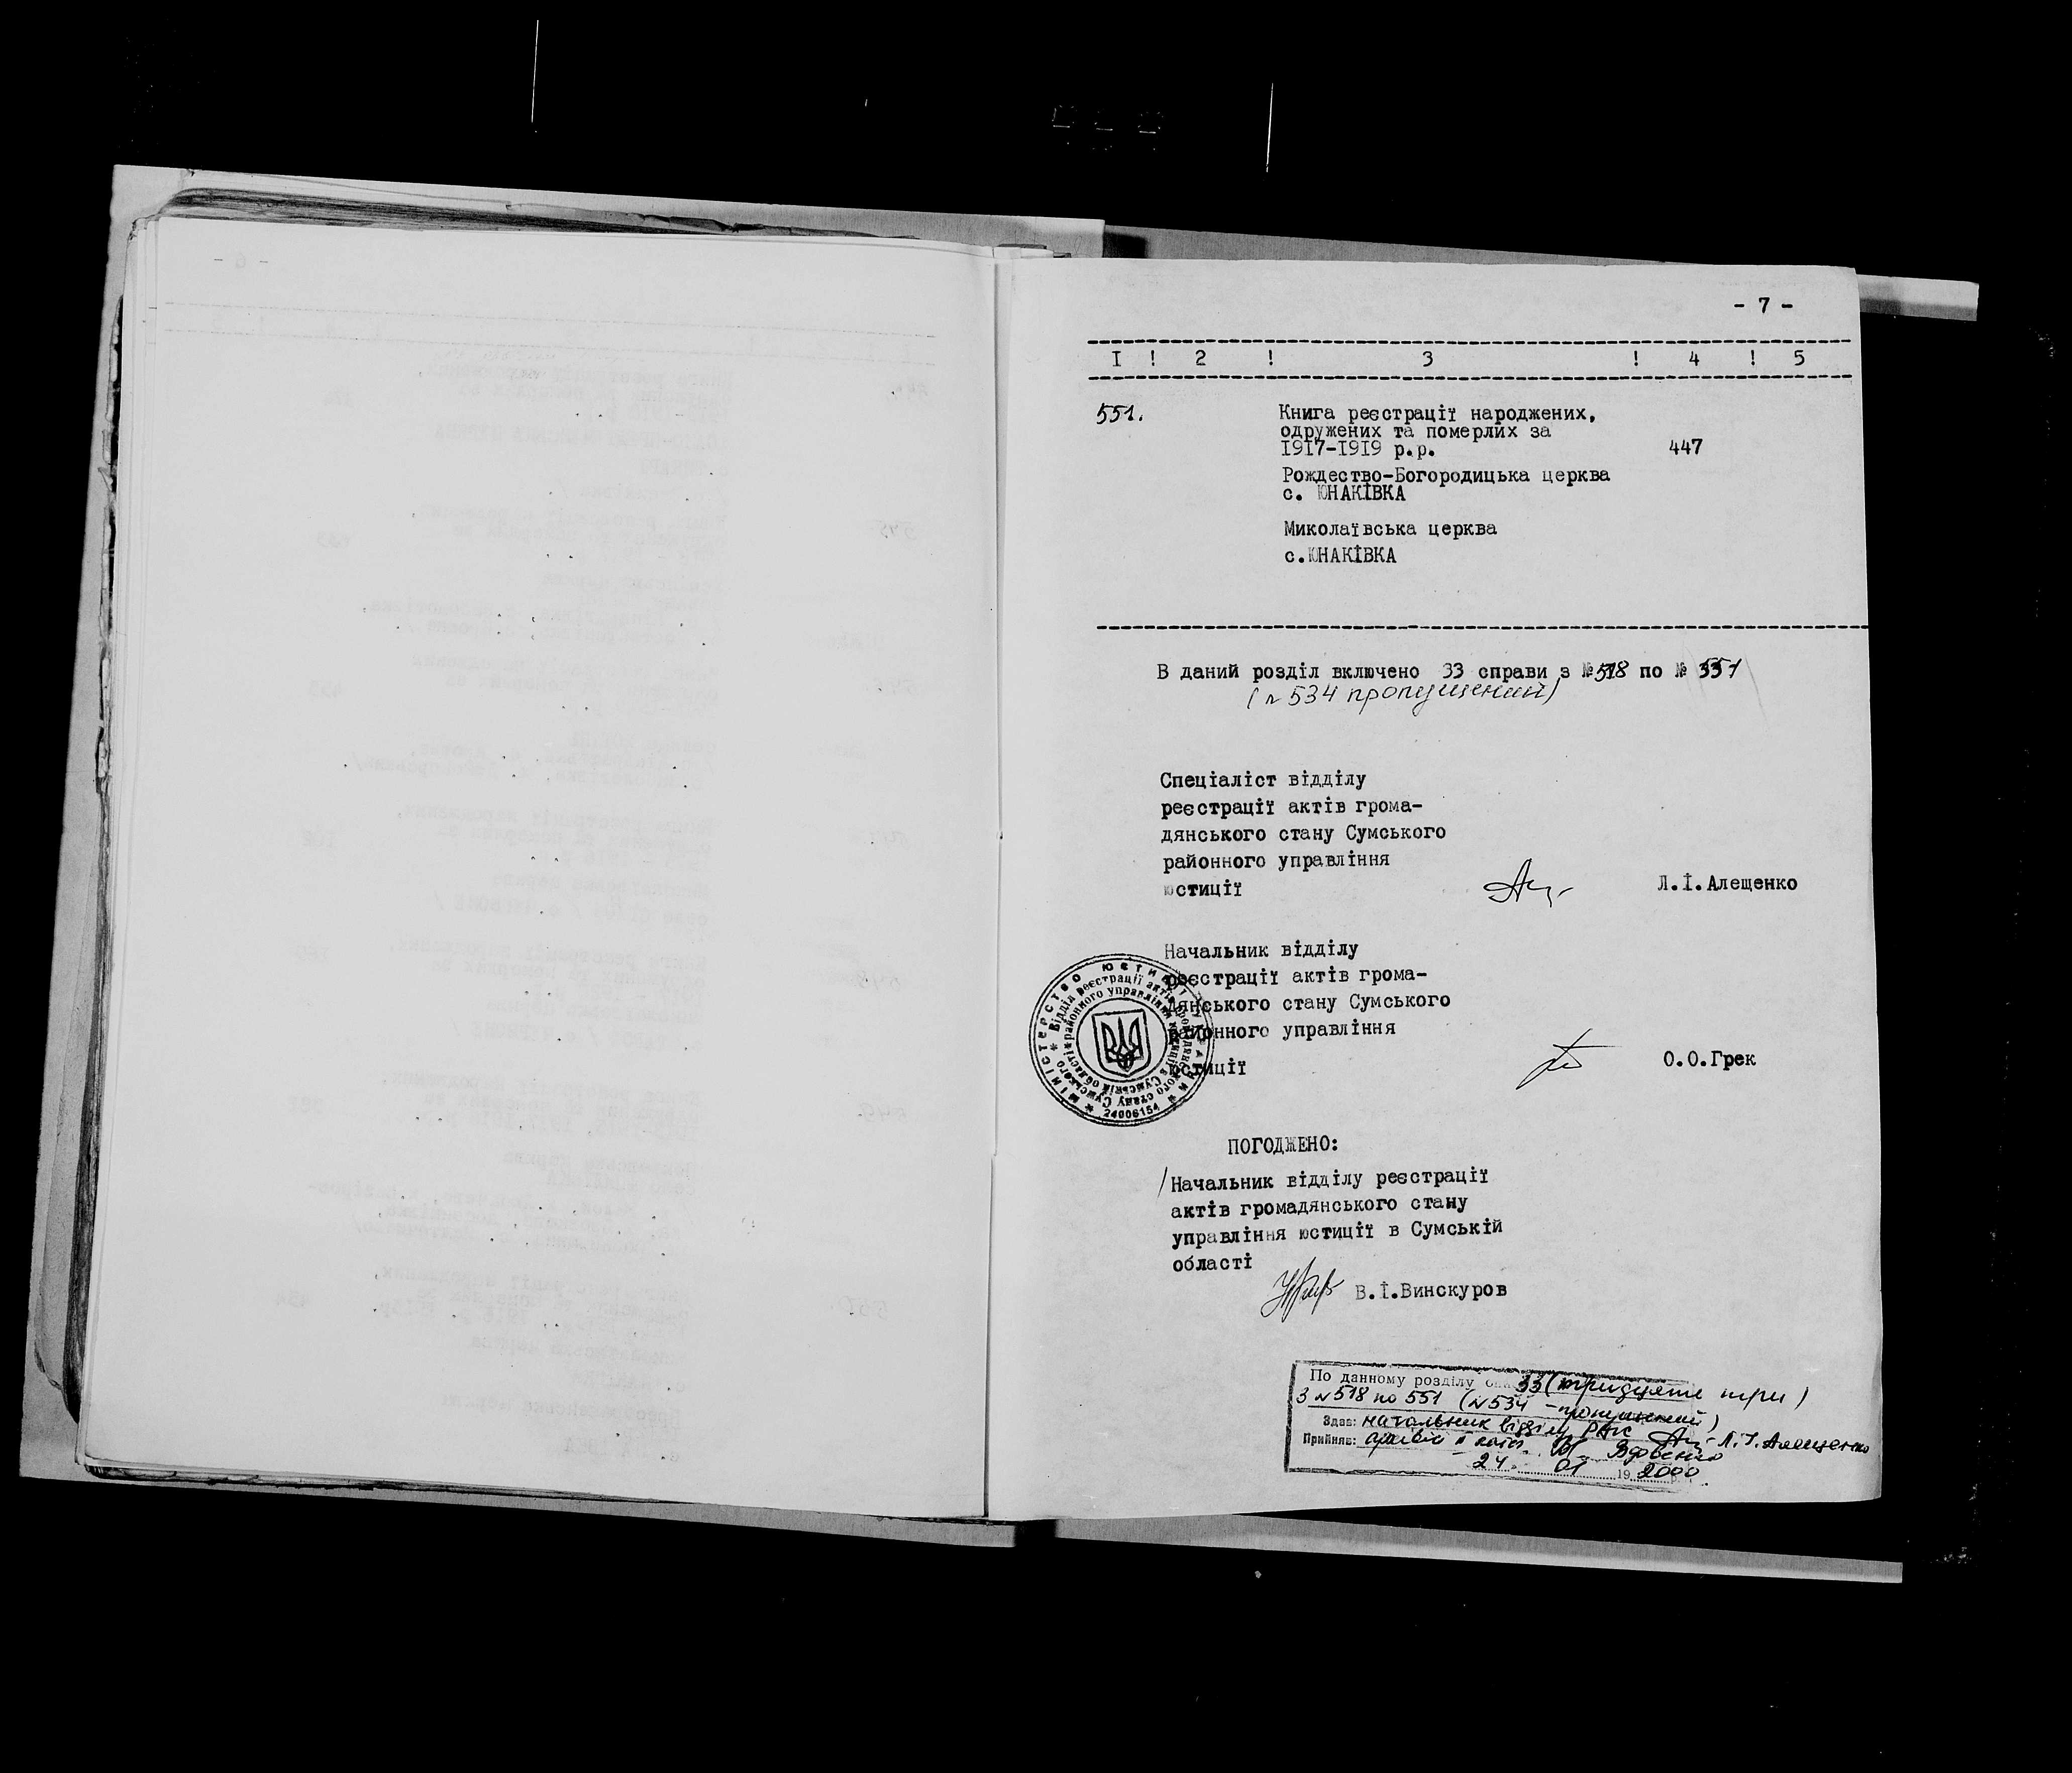 - 7 -
I ! 2 ! 3 ! 4 ! 5
551. Книга реєстрації народжених,
одружених та померлих за
1917-1919 р.р. 447
Рождество-Богородицька церква
с. ЮНАКІВКА
Миколаївська церква
с.ЮНАКІВКА
В даний розділ включено 33 справи з №518 по № 551
(№ 534 пропущений)
Спеціаліст відділу
реєстрації актів грома-
дянського стану Сумського
районного управління
юстиції Л.І.Алещенко
Начальник відділу
реєстрації актів грома-
дянського стану Сумського
районного управління
юстиції О.О.Грек
МІНІСТЕРСТВО ЮСТИЦІЇ УКРАЇНИ
Відділ реєстрації актів громадянського стану Сумського
районного управління юстиції в Сумській області
24006154
ПОГОДЖЕНО:
Начальник відділу реєстрації
актів громадянського стану
управління юстиції в Сумській
області
В.І.Винскуров
По данному розділу 33 (тридцять три)
З №518 по 551 (№534 - пропущений)
Здав: начальник відділу РАГС Л.І. Алещенко
Прийняв:
24 01 19 2000